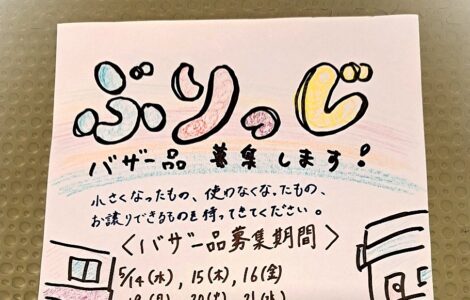 ぶりっじ
バザー品募集します!
小さくなったもの、使わなくなったもの、
お譲りできるものを持ってきてください。
<バザー品募集期間>
5/14(水), 15(木), 16(金)